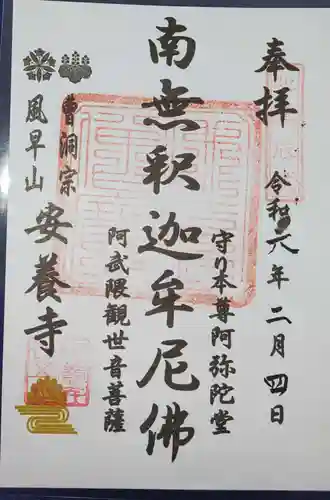 奉拝
令和六年二月四日
守り本尊阿弥陀堂
南無釈迦牟尼佛
阿武隈觀世音菩薩
曹洞宗
風早山安養寺